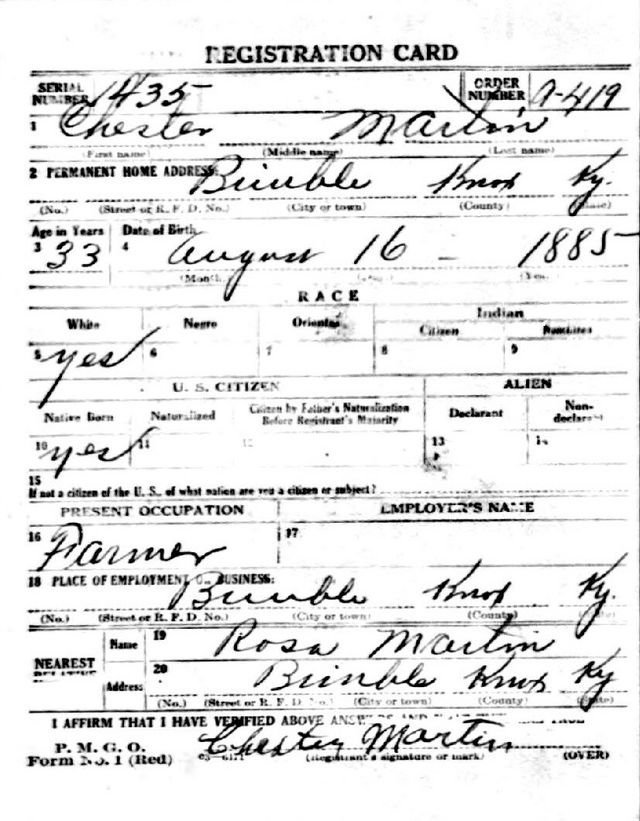 REGISTRATION CARD
SERIAL NUMBER 1435 ORDER NUMBER A-419
1 Chester Martin
(First name) (Middle name) (Last name)
2 PERMANENT HOME ADDRESS: Bimble Knox Ky.
(No.) (Street or R. F. D. No.) (City or town) (County) (State)
Age in Years Date of Birth
3 33 4 August 16 - 1885
(Month) (Year)
RACE
White Negro Oriental Indian
Citizen
5 yes 6 7 8 9
U. S. CITIZEN ALIEN
Native Born Naturalized Citizen by Father's Naturalization Before Registrant's Majority Declarant Non-declarant
10 yes 11 12 13 14
15
If not a citizen of the U. S., of what nation are you a citizen or subject?
PRESENT OCCUPATION EMPLOYER'S NAME
16 Farmer 17
18 PLACE OF EMPLOYMENT OR BUSINESS: Bimble Knox Ky.
(No.) (Street or R. F. D. No.) (City or town) (County) (State)
NEAREST RELATIVE Name 19 Rosa Martin
Address 20 Bimble Knox Ky
(No.) (Street or R. F. D. No.) (City or town) (County) (State)
I AFFIRM THAT I HAVE VERIFIED ABOVE ANSWERS AND
P. M. G. O.
Form No. 1 (Red) Chester Martin
(Registrant's signature or mark) (OVER)